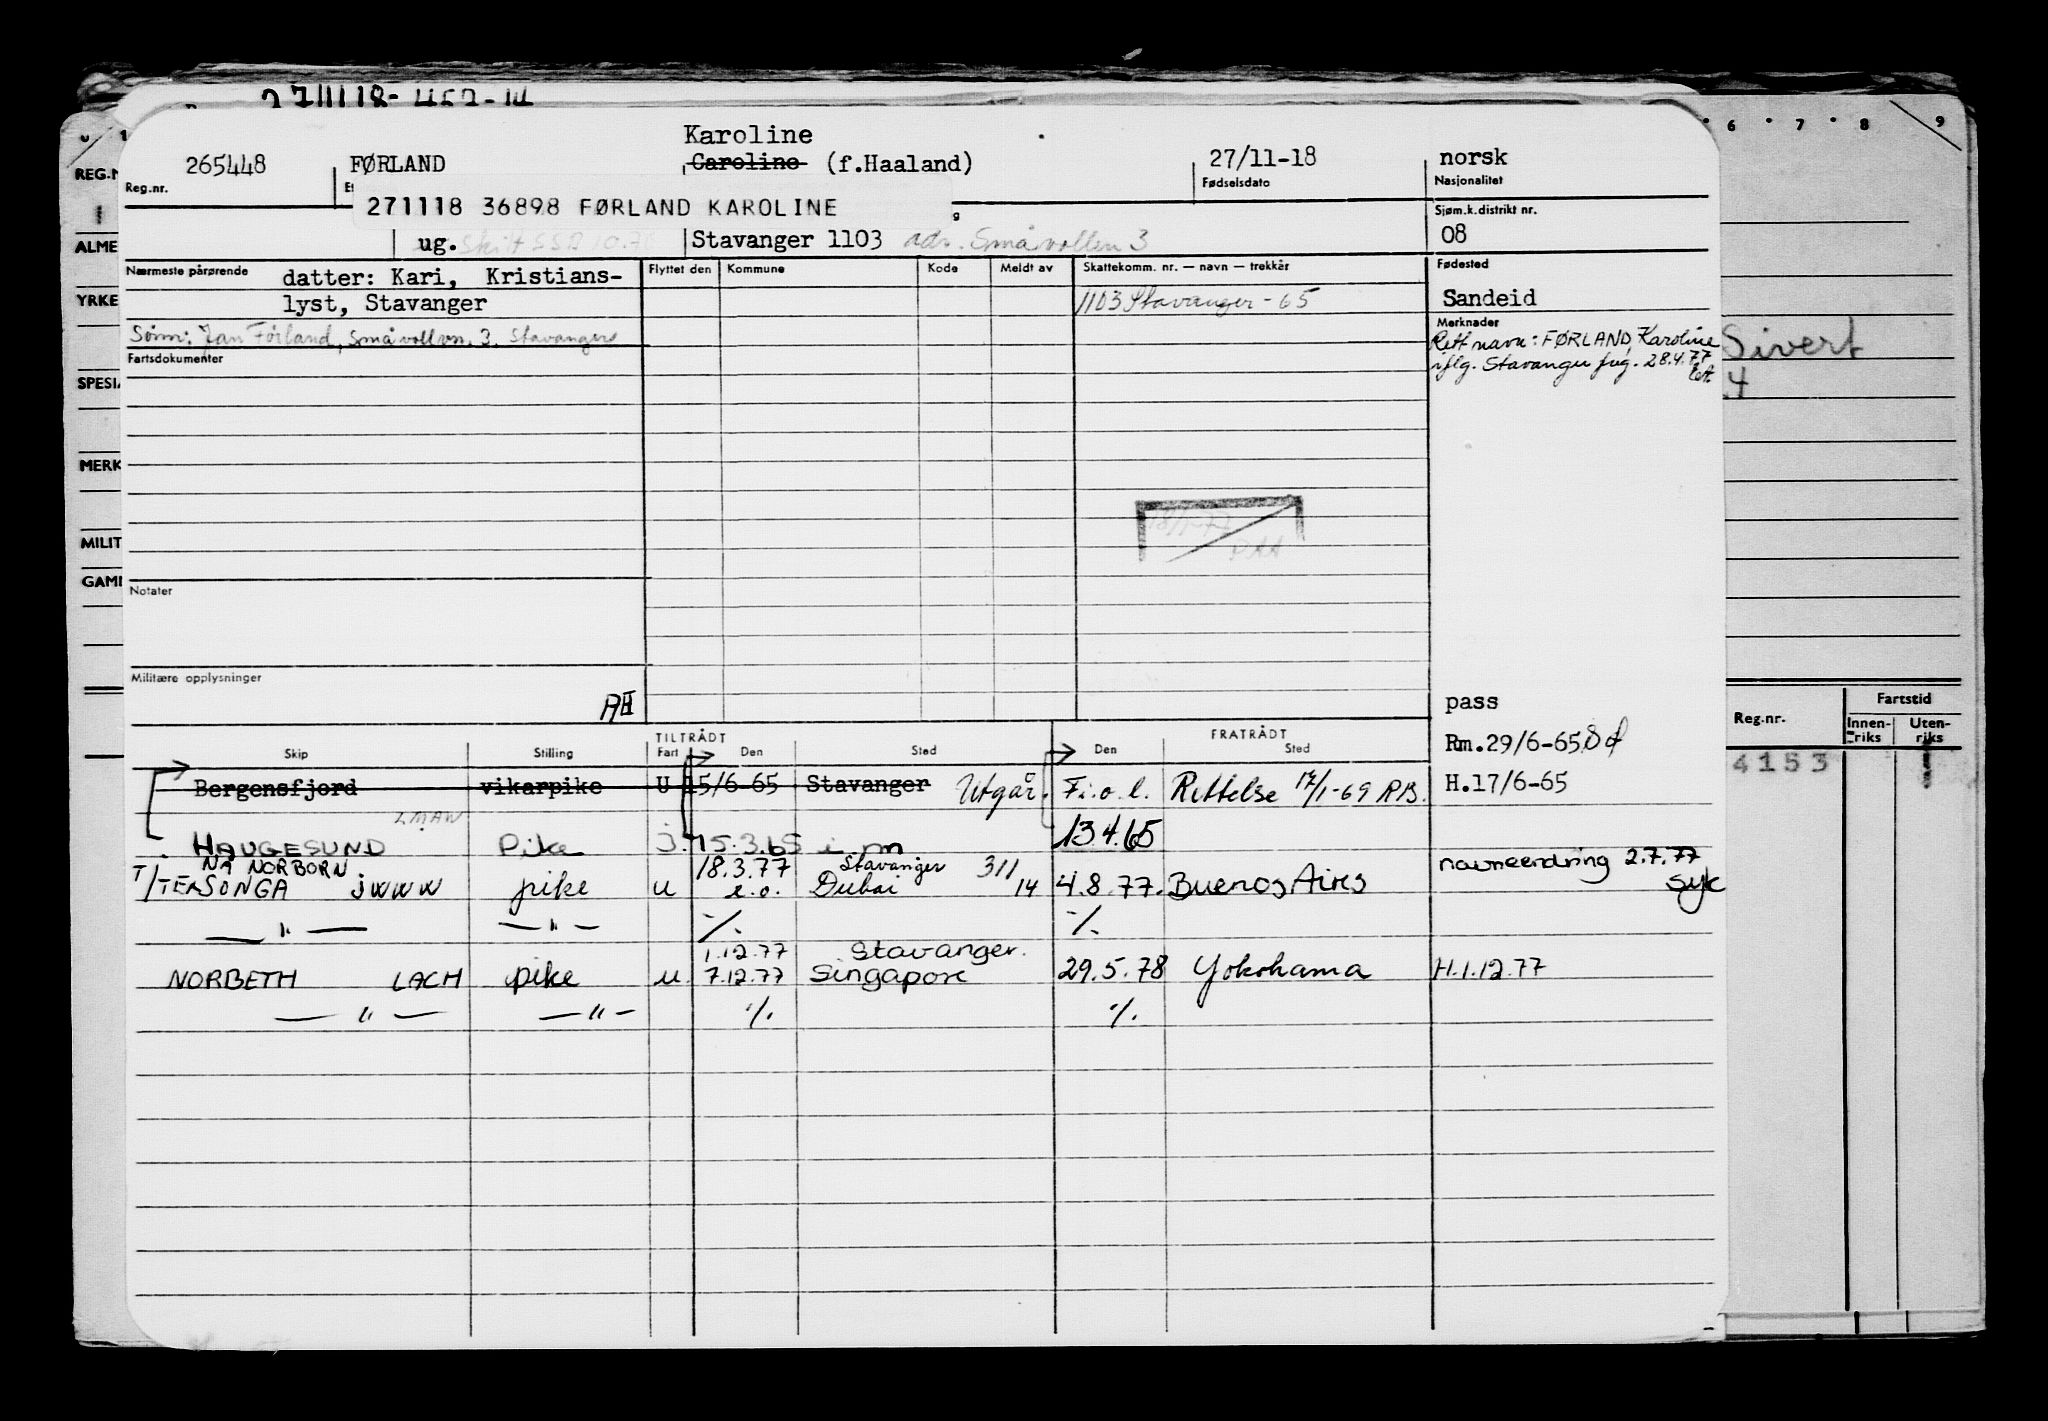 Karoline
265448 FØRLAND Caroline (f.Haaland) 27/11-18 norsk
Reg.nr. Fødselsdato Nasjonalitet
271118 36898 FØRLAND KAROLINE
Sjøm.k.distrikt nr.
ug. Stavanger 1103 adr. Småvollen 3 08
Nærmeste pårørende datter: Kari, Kristians-
lyst, Stavanger
Sønn: Jan Førland, Småvollvn. 3. Stavanger
Flyttet den Kommune Kode Meldt av Skattekomm. nr. — navn — trekkår
1103 Stavanger - 65
Fødested
Sandeid
Merknader
Rett navn: FØRLAND, Karoline
iflg. Stavanger 28.4.77
Fartsdokumenter
Notater
Militære opplysninger
pass
Rm.29/6-65
H.17/6-65
TILTRÅDT FRATRÅDT
Skip Stilling Fart Den Sted Den Sted
Bergensfjord vikarpike U 15/6-65 Stavanger Utgår. F.o.l. Rettelse 17/1-69 RB.
LMAW
HAUGESUND Pike j. 15.3.65 i.m 13.4.65
NÅ NORBORN 18.3.77 Stavanger 311
T/T TERSONGA JWWW pike u e.o. Dubai 14 4.8.77. Buenos Aires
navneendring 2.7.77
syk
— " — — " — ./. ./.
1.12.77 Stavanger.
NORBETH LACH pike u. 7.12.77 Singapore 29.5.78 Yokohama H.1.12.77
— " — — " — ./. ./.
6 7 8 9
REG.N
ALME
YRKE
SPESIA
MERK
MILIT
GAM
Sivert
4
Reg.nr. Fartstid
Innen-riks Uten-riks
4153 1